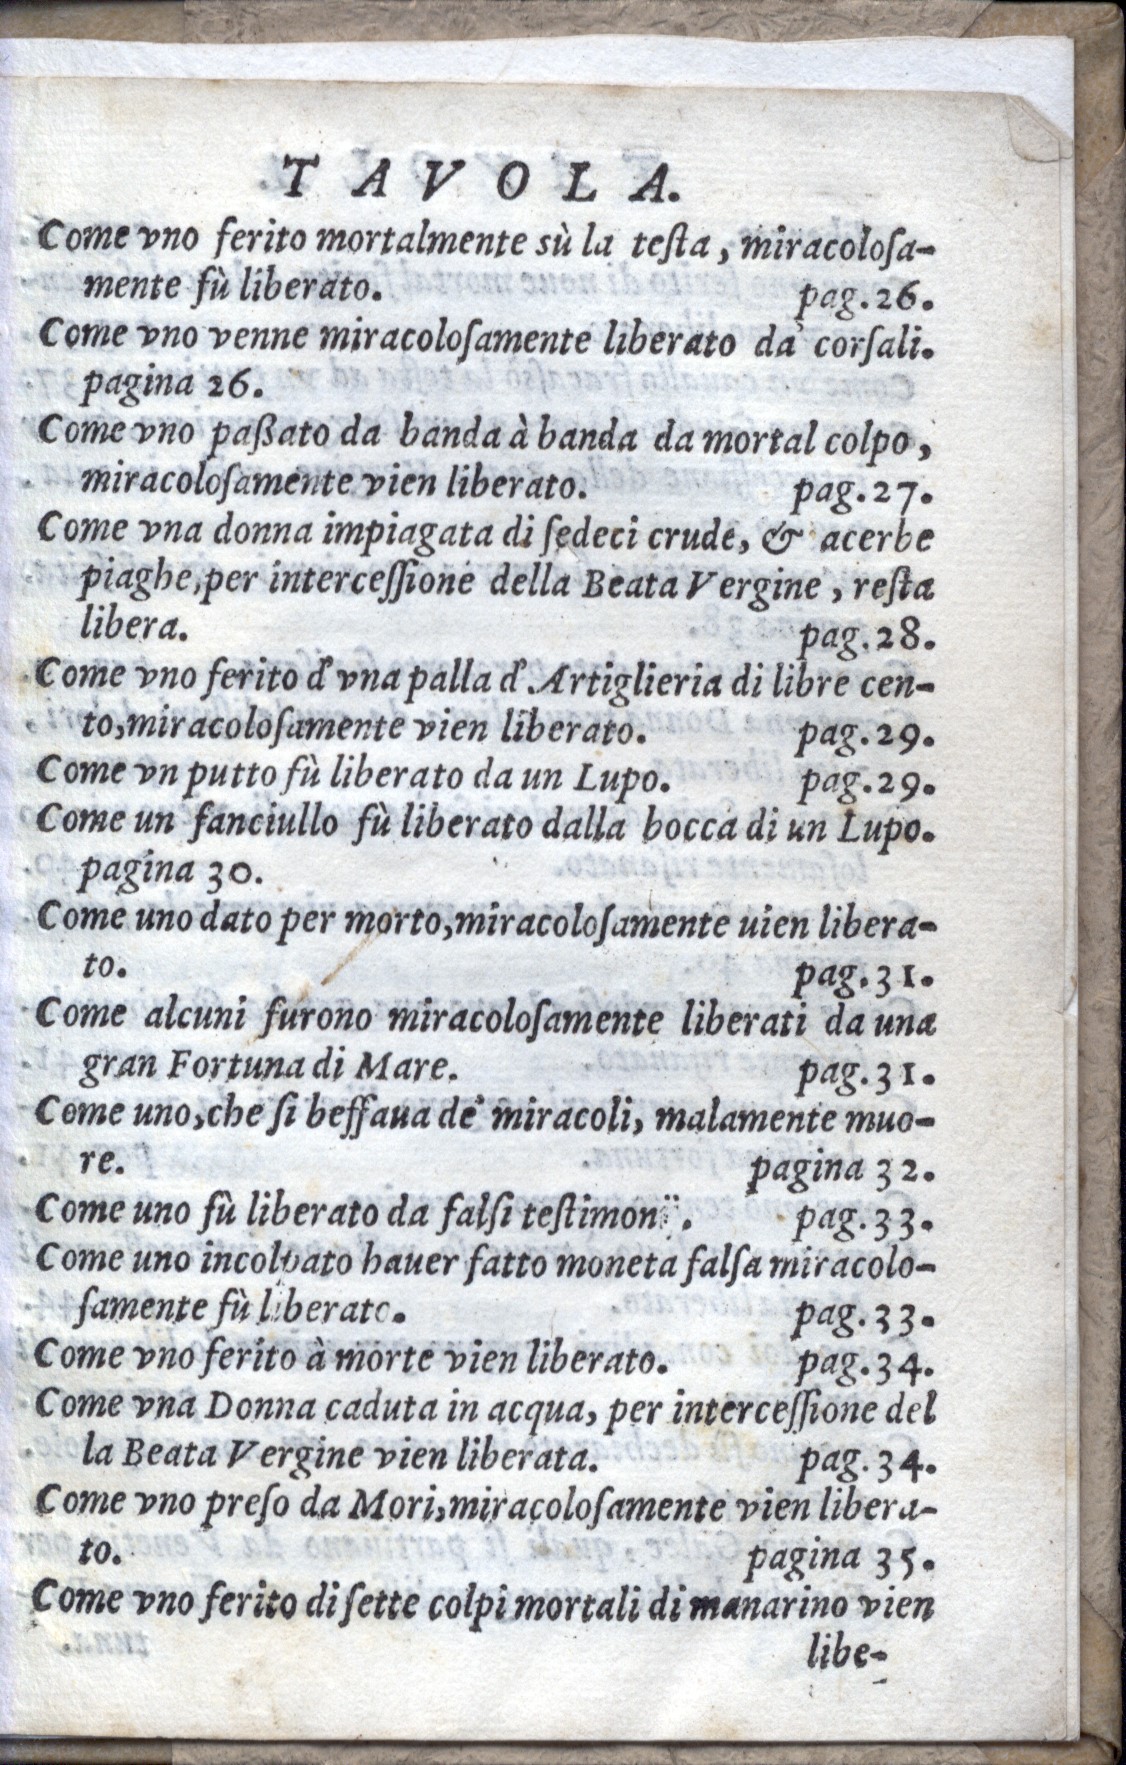 TAVOLA.
Come vno ferito mortalmente sù la teſta, miracoloſa-
mente fù liberato. pag.26.
Come vno venne miracoloſamente liberato da corſali.
pagina 26.
Come vno paßato da banda à banda da mortal colpo,
miracoloſamente vien liberato. pag.27.
Come vna donna impiagata di ſedeci crude, & acerbe
piaghe, per interceſſione della Beata Vergine, reſta
libera. pag.28.
Come vno ferito d' vna palla d' Artiglieria di libre cen-
to, miracoloſamente vien liberato. pag.29.
Come vn putto fù liberato da un Lupo. pag.29.
Come un fanciullo fù liberato dalla bocca di un Lupo.
pagina 30.
Come uno dato per morto, miracoloſamente uien libera-
to. pag.31.
Come alcuni furono miracoloſamente liberati da una
gran Fortuna di Mare. pag.31.
Come uno, che ſi beffaua de' miracoli, malamente muo-
re. pagina 32.
Come uno fù liberato da falſi teſtimonÿ. pag.33.
Come uno incolpato hauer fatto moneta falſa miracolo-
ſamente fù liberato. pag.33.
Come vno ferito à morte vien liberato. pag.34.
Come vna Donna caduta in acqua, per interceſſione del
la Beata Vergine vien liberata. pag.34.
Come vno preſo da Mori, miracoloſamente vien libera-
to. pagina 35.
Come vno ferito di ſette colpi mortali di manarino vien
libe-